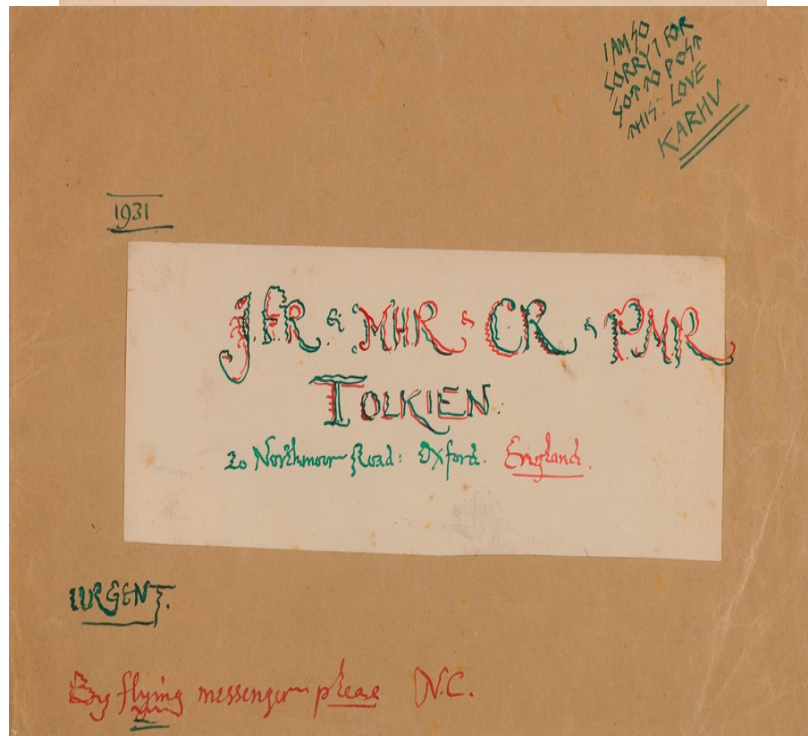 I AM SO
SORRY I FOR
GOT TO POST
THIS: LOVE
KARHU
1931
J.FR. & MHR & CR & PMR
TOLKIEN.
20 Northmoor Road: Oxford. England.
URGENT.
By flying messenger please N.C.